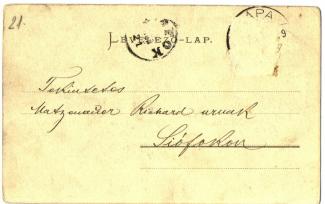 21.
LEVELEZŐ-LAP.
PÁPA
9
Tekintetes
Matzenauer Richard urnak
Siófokon